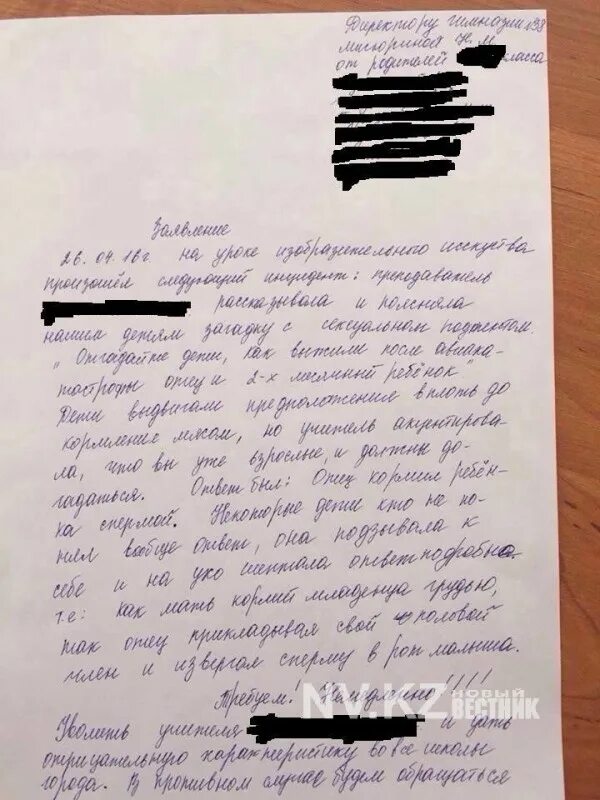 Директору гимназии №38
Мисюриной Н. М
от родителей класса
Заявление
26.04.16г на уроке изобразительного исскуства
произошёл следующий инцидент: преподаватель
рассказывала и поясняла
нашим детям загадку с сексуальном подтекстом.
„ Отгадайте дети, как выжили после авиака-
тастрофы отец и 2-х месячный ребёнок"
Дети выдвигали предположение вплоть до
кормление мясом, но учитель акцентирова-
ла, что вы уже взрослые, и должны до-
гадаться. Ответ был: Отец кормил ребён-
ка спермой. Некоторые дети кто не по-
нял вообще ответ, она подзывала к
себе и на ухо шептала ответ подробна.
т.е: как мать кормит младенца грудью,
так отец прикладывал свой половой
член и извергал сперму в рот малыша.
Требуем! Немедленно!!!!
Уволить учителя и дать
отрицательную характеристику во все школы
города. В противном случае будем обращаться
NV.KZ НОВЫЙ ВЕСТНИК